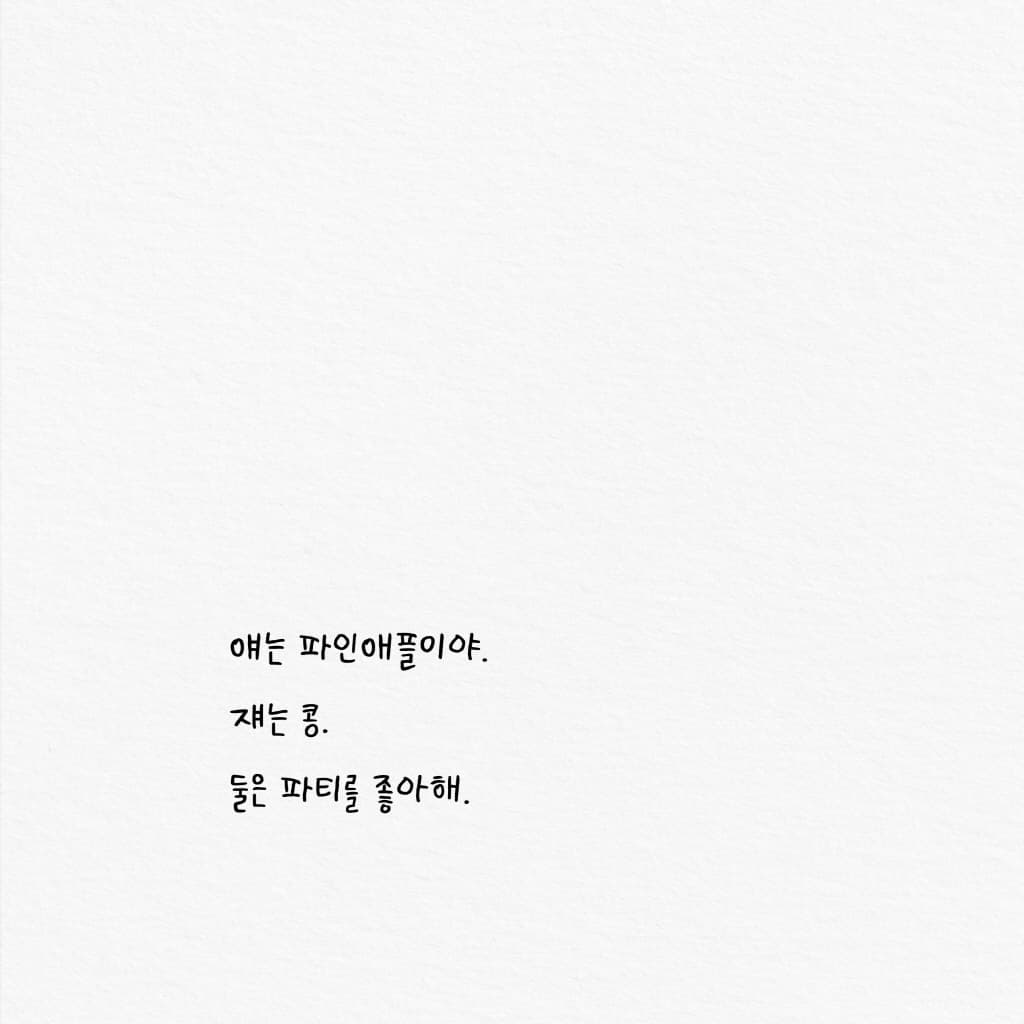 얘는 파인애플이야.
쟤는 콩.
둘은 파티를 좋아해.